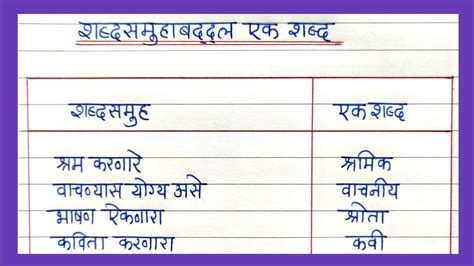 शब्दसमुहाबद्दल एक शब्द
शब्दसमुह एकशब्द
श्रम करणारे श्रमिक
वाचण्यास योग्य असे वाचनीय
भाषण ऐकणारा श्रोता
कविता करणारा कवी